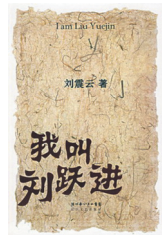 I am Liu Yuejin
刘震云 著
我叫
刘跃进